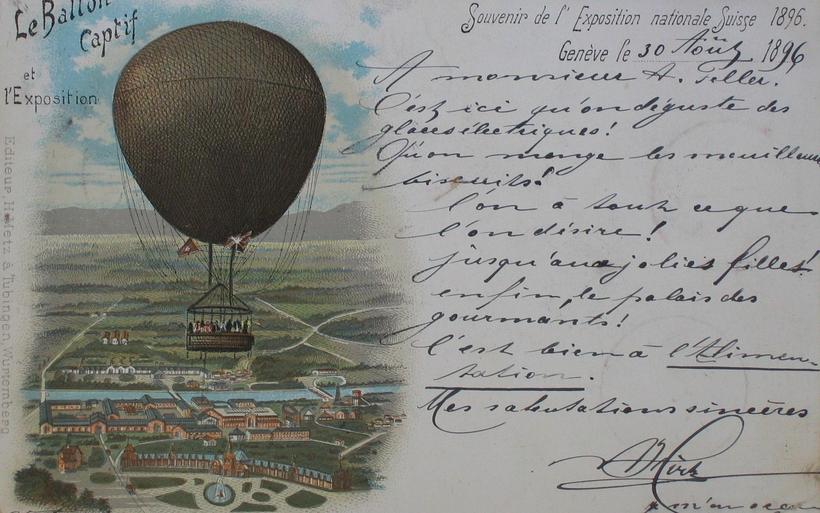 Le Ballon
Captif
et
l'Exposition
Souvenir de l'Exposition nationale Suisse 1896.
Genève le 30 Août 1896
A monsieur A. Feller.
C'est ici qu'on déguste des
glaces électriques!
Qu'on mange les meilleurs
biscuits!
l'on à tout ce que
l'on désire!
jusqu'aux jolies filles!
enfin, le palais des
gourmants!
C'est bien à l'Alimen-
tation.
Mes salutations sincères
Editeur, H. Metz à Tubingen, Würtemberg